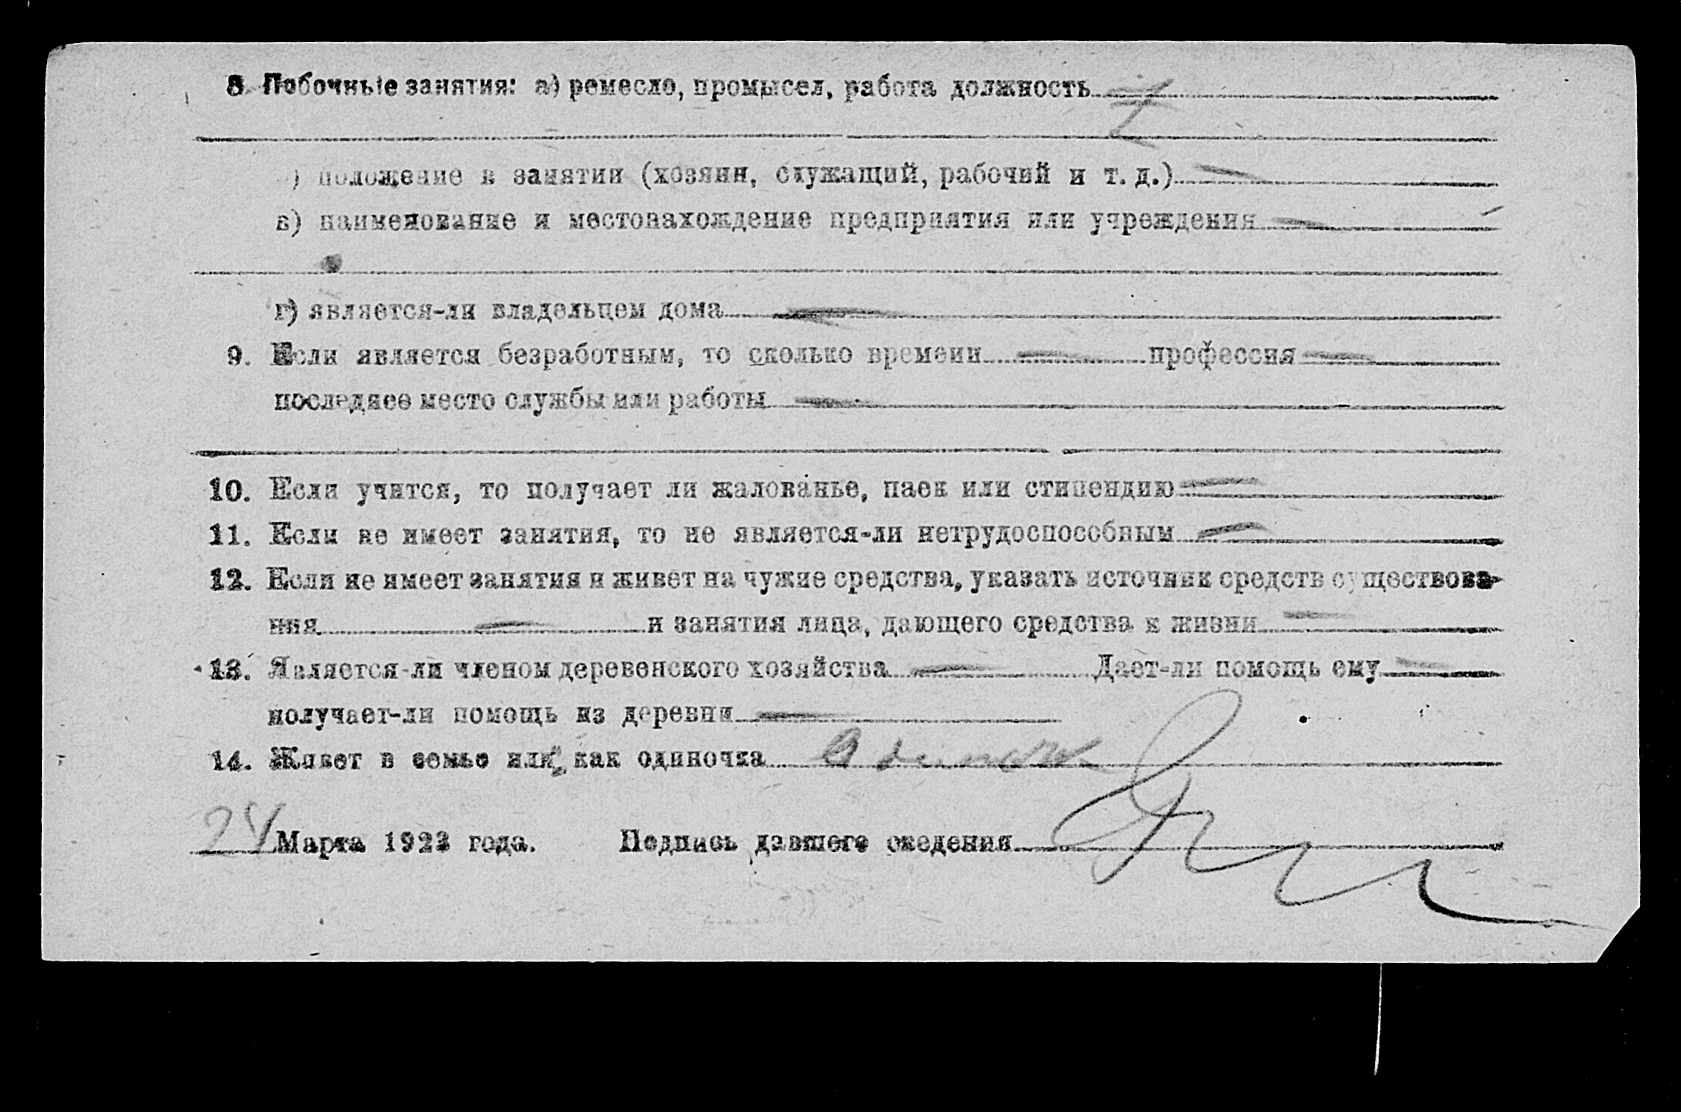 8. Побочные занятия: а) ремесло, промысел, работа должность —
) положение в занятии (хозяин, служащий, рабочий и т. д.) —
в) наименование и местонахождение предприятия или учреждения —
г) является-ли владельцем дома —
9. Если является безработным, то сколько времени — профессия —
последнее место службы или работы —
10. Если учится, то получает ли жалованье, паек или стипендию —
11. Если не имеет занятия, то не является-ли нетрудоспособным —
12. Если не имеет занятия и живет на чужие средства, указать источник средств существова-
ния — и занятия лица, дающего средства к жизни —
13. Является-ли членом деревенского хозяйства — Дает-ли помощь ему —
получает-ли помощь из деревни —
14. Живет в семье или как одиночка Одинок
24 Марта 1923 года. Подпись давшего сведения